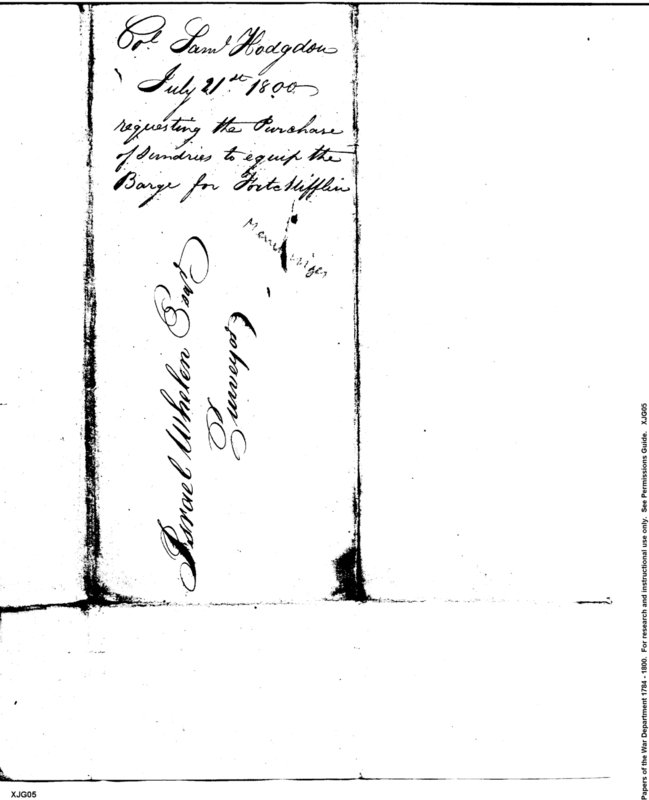 Col. Saml Hodgdon
July 21st 1800
requesting the Purchase
of Sundries to equip the
Barge for Fort Mifflin
Israel Whelen Esqr
Purveyor
Papers of the War Department 1784 - 1800. For research and instructional use only. See Permissions Guide. XJG05
XJG05